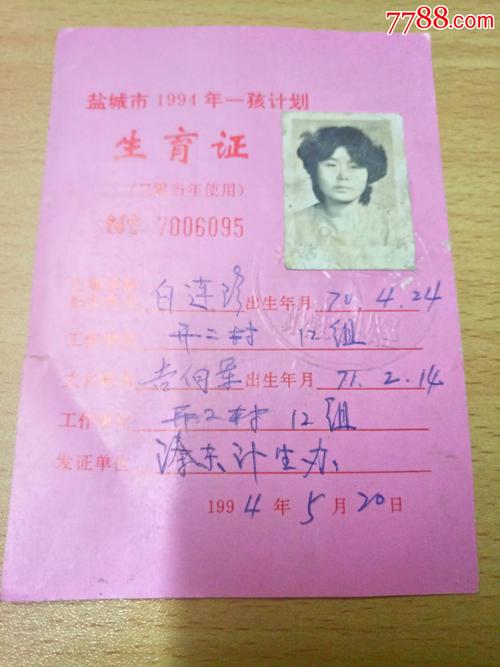 7788.com
盐城市1994年一孩计划
生育证
(只限当年使用)
№ 7006095
白连珍 出生年月 70.4.24
工作单位 开二村 12组
出生年月 71.2.14
工作单位 开二村 12组
发证单位 潘东计生办
1994年5月20日